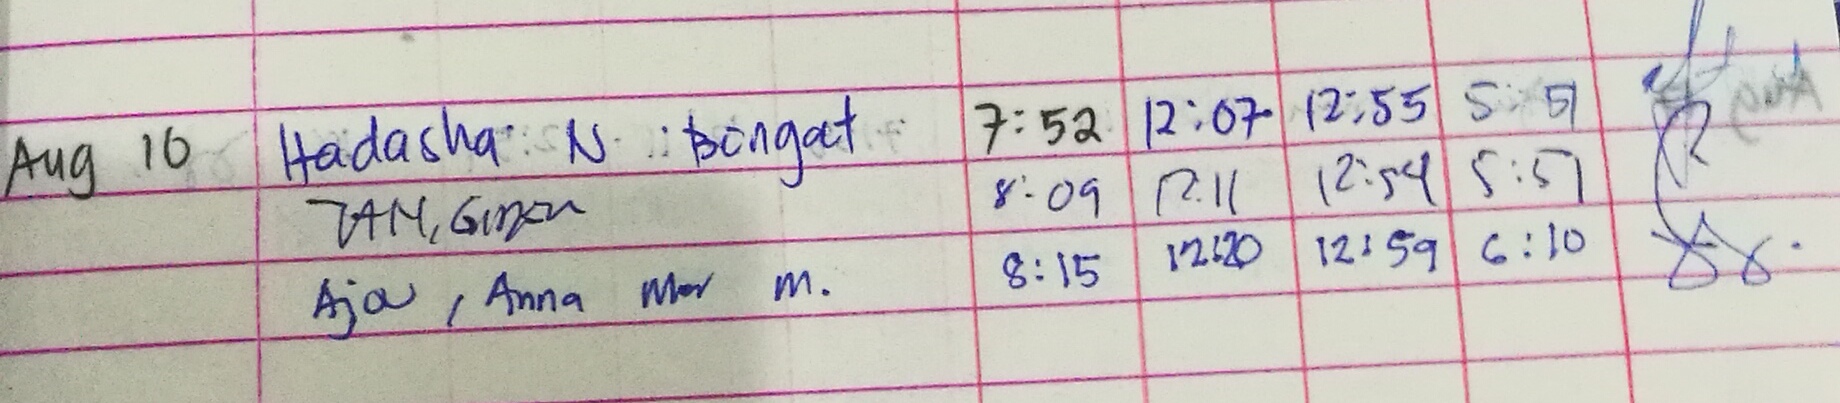 Aug 16 Hadasha N. Bongat 7:52 12:07 12:55 5:51
TAN, 8:09 12:11 12:54 5:51
Aja, Anna Mar M. 8:15 12:20 12:59 6:10